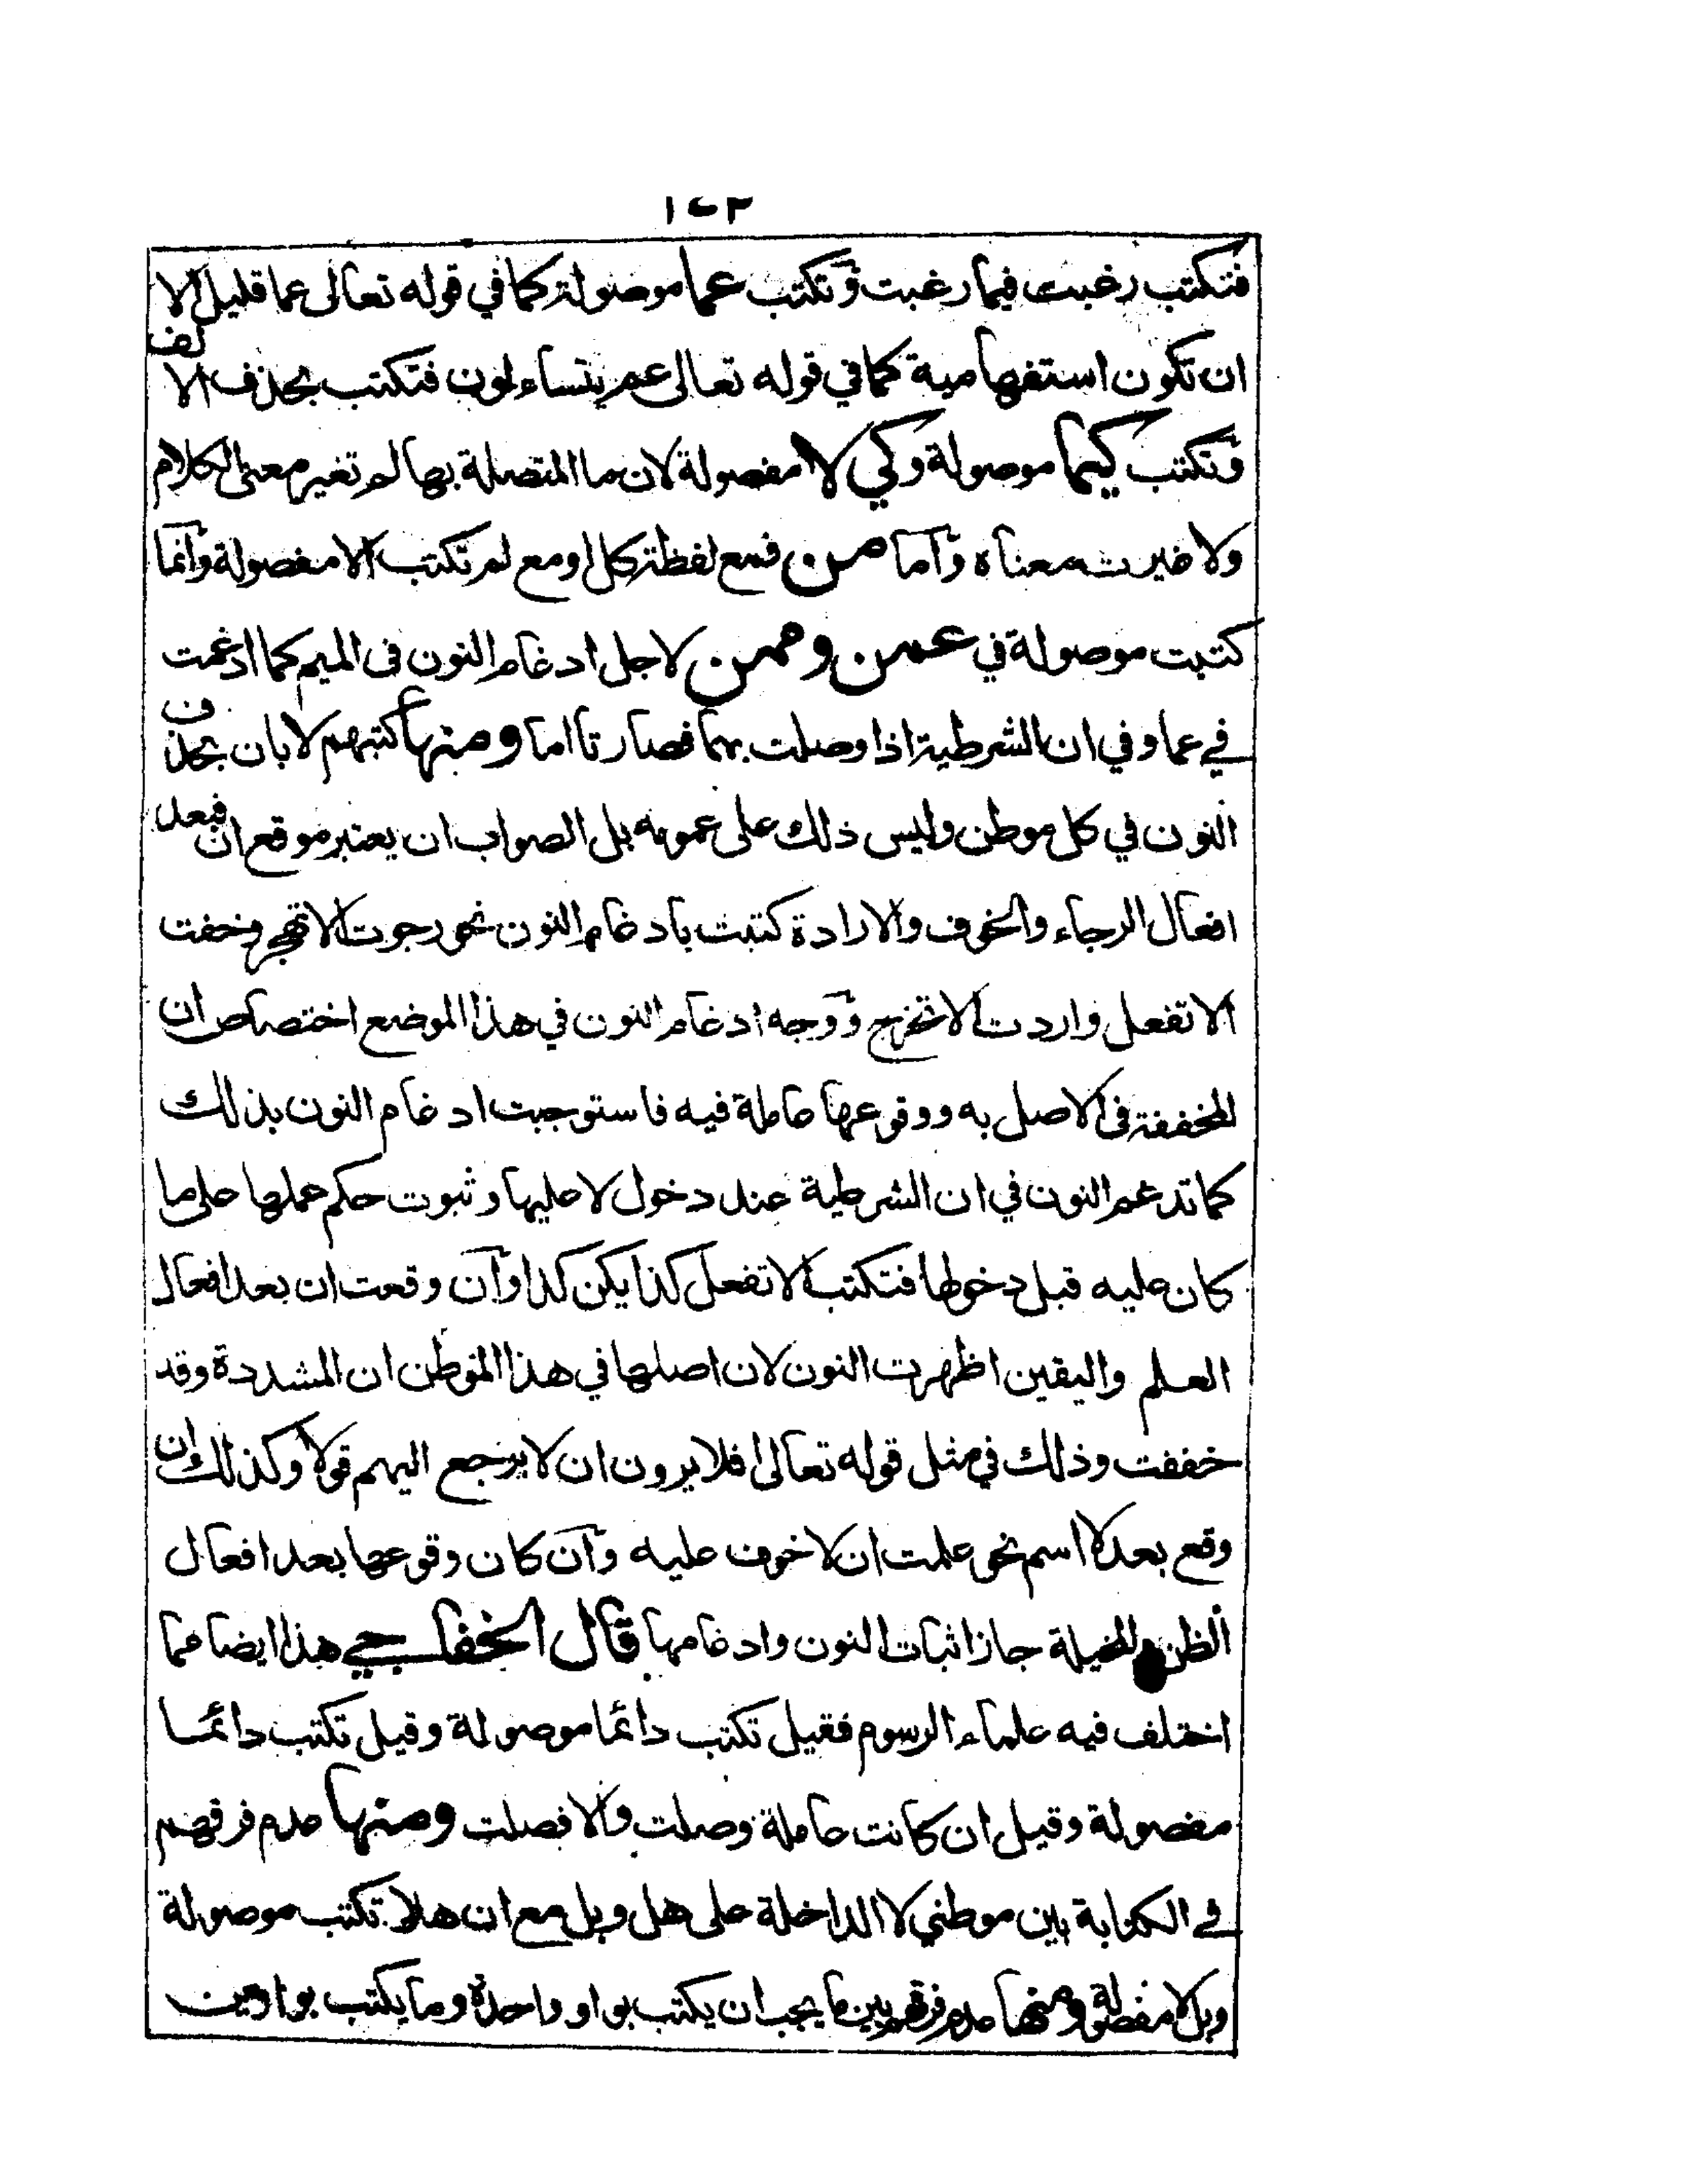 ١٥٣
فتكتب رغبت فيما رغبت وتكتب عما موصولة كما في قوله تعالى عما قليل الا
ان تكون استفهامية كما في قوله تعالى عم يتساءلون فتكتب بحذف الالف
وتكتب كيما موصولة وكي لا مفصولة لان ما المتصلة بها لم تغير معنى الكلام
ولا غيرت معناه وأما من فمع لفظة كل او مع لم تكتب الا مفصولة وانما
كتبت موصولة في عمن وممن لاجل ادغام النون في الميم كما ادغمت
في عما وفي ان الشرطية اذا وصلت بما فصارتا اما ومنها كتبهم لا بان بحذف
النون في كل موطن وليس ذلك على عمومه بل الصواب ان يعتبر موقع ان فبعد
افعال الرجاء والخوف والارادة كتبت بادغام النون نحو رجوت الا تهجر وخفت
الا تفعل واردت الا تخرج ووجه ادغام النون في هذا الموضع اختصاص ان
المخففة في الاصل به ووقوعها عاملة فيه فاستوجبت ادغام النون بذلك
كما تدغم النون في ان الشرطية عند دخول لا عليها وثبوت حكم عملها على ما
كان عليه قبل دخولها فتكتب الا تفعل كذا يكن كذا وان وقعت ان بعد افعال
العلم واليقين اظهرت النون لان اصلها في هذا الموطن ان المشددة وقد
خففت وذلك في مثل قوله تعالى افلا يرون ان لا يرجع اليهم قولا وكذلك ان
وقع بعد لا اسم نحو علمت ان لا خوف عليه وان كان وقوعها بعد افعال
الظن والمخيلة جاز اثبات النون وادغامها قال الخفاجي هذا ايضا مما
اختلف فيه علماء الرسوم فقيل تكتب دائما موصولة وقيل تكتب دائما
مفصولة وقيل ان كانت عاملة وصلت والا فصلت ومنها عدم فرقهم
في الكتابة بين موطني لا الداخلة على هل وبل مع ان هلا تكتب موصولة
وبل لا مفصولة ومنها عدم فرقهم بين ما يجب ان يكتب بواو واحدة وما يكتب بواوين